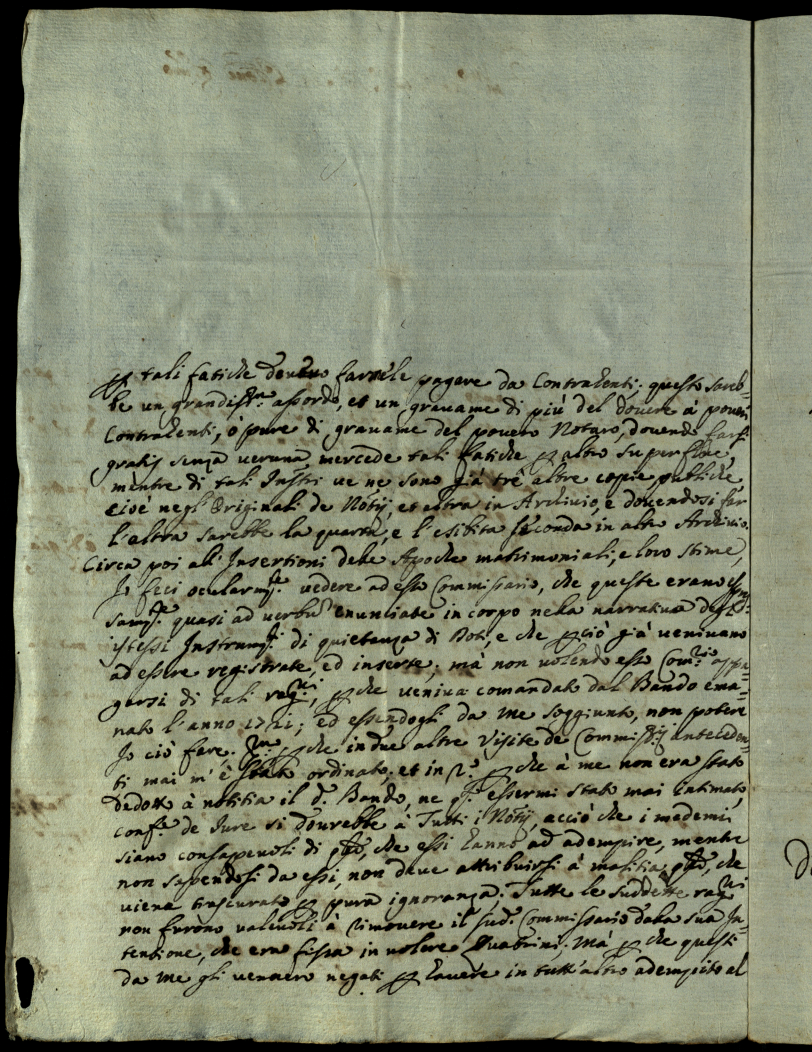 p tali fatiche devono farsele pagare da Contrahenti; questo sareb=
be un grandiss.º assordo, et un gravame di più del dovere à poveri
Contrahenti, ò pure di gravame del povero Notaro, dovendo farsi
gratis senza veruna mercede tali fatiche p altro superflue,
mentre di tali Instri ve ne sono già trè altre copie publiche,
cioè negl'Originali de Notij, et altra in Archivio, e dovendosi far
l'altra sarebbe la quarta, e l'esibita seconda in altro Archivio.
Circa poi all'Insertioni delle Apoche matrimoniali, e loro stime,
Io feci ocularmᵗᵉ vedere ad esso Commissario, che queste erano
samᵗᵉ quasi ad verbũ enunciate in corpo nella narrativa degl'=
istessi Instrumᵗⁱ di quietanza di Doti, e che p ciò già venivano
ad essere registrate, ed inserte; mà non volendo esso Comʳⁱᵒ appa=
garsi di tali ragⁿⁱ, p che veniva comandato dal Bando ema=
nato l'anno 1721; ed essendogli da me soggiunto, non potere
Io ciò fare. p che in due altre Visite de Commissʳⁱʲ anteceden=
ti mai m'è stato ordinato, et in 2.º p che à me non era stato
dedotto à notitia il d.º Bando, ne essermi stato mai intimato,
conf.ᵉ de Iure si dourebbe à Tutti i Notij, acciò che i medemi
siano consapevoli di qto, che essi hanno ad adempire, mentre
non sapendosi da essi, non deve attribuirsi à malitia qto, che
viene trascurato p pura ignoranza; Tutte le suddette ragⁿⁱ
non furono valevoli à rimovere il sud.º Commissario dalla sua In=
tentione, che era fissa in volere Quatrini; Mà p che questi
da me gli vennero negati p havere in tutt'altro adempito al